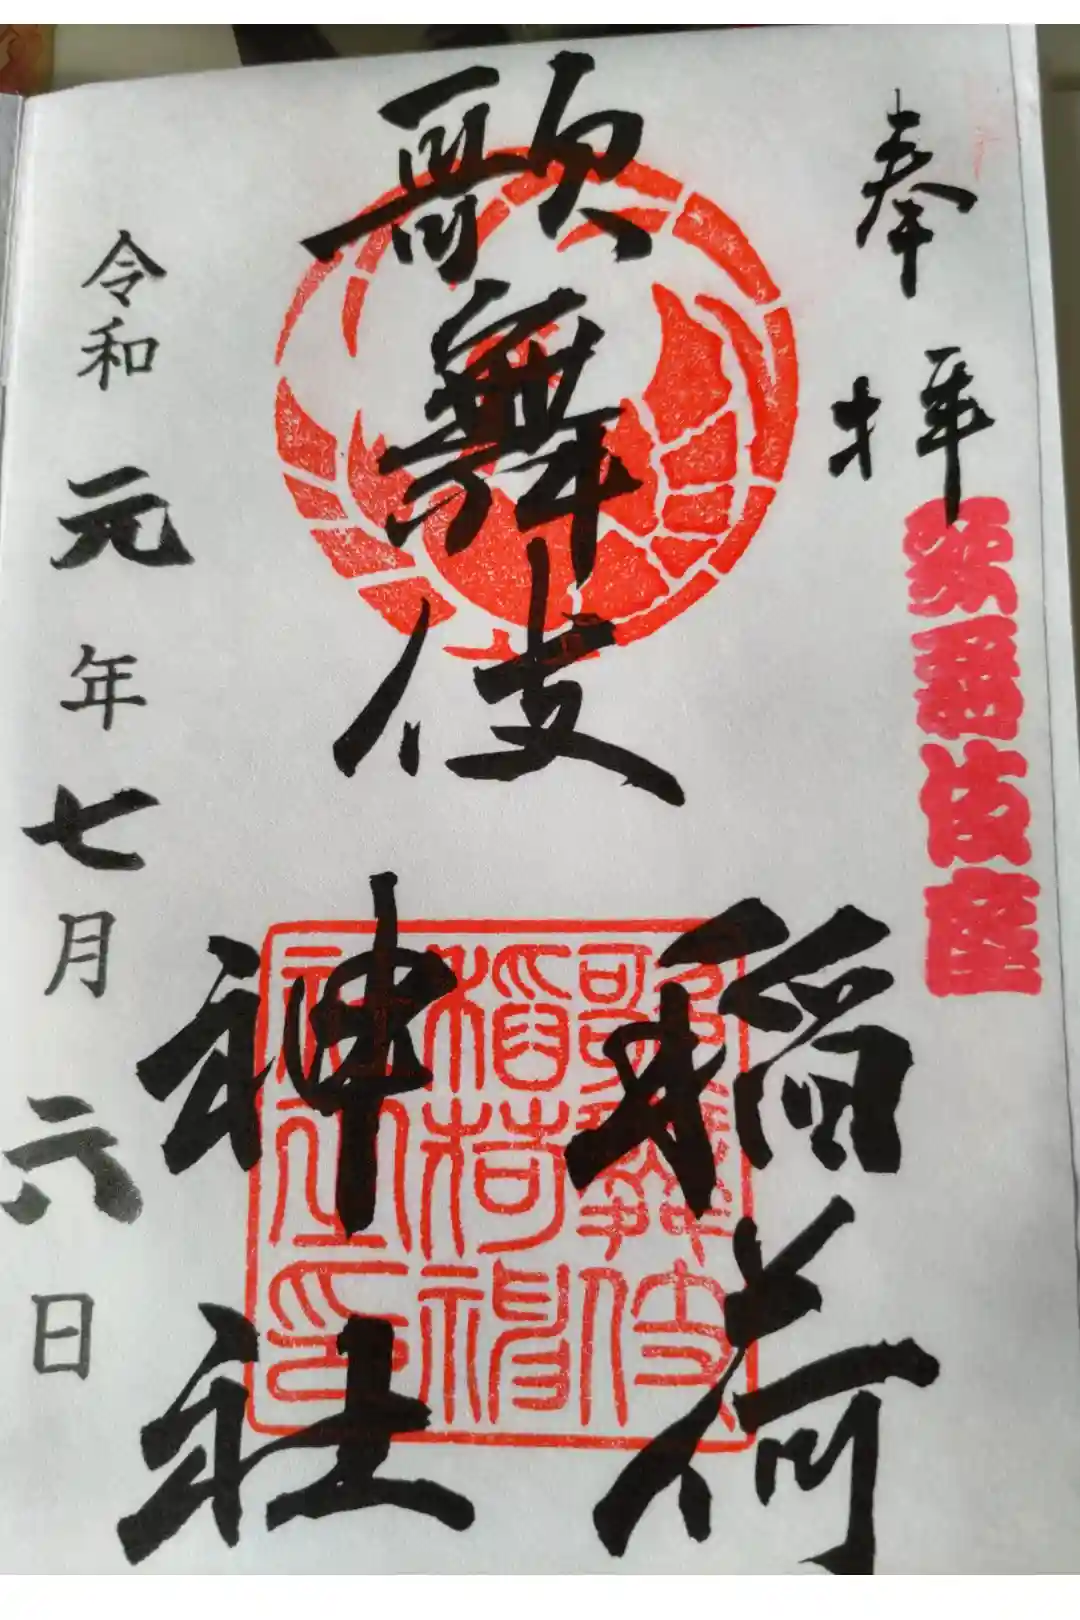 奉拝
歌舞伎座
歌舞伎
稲荷
神社
歌舞伎
稲荷神
社之印
令和元年七月六日